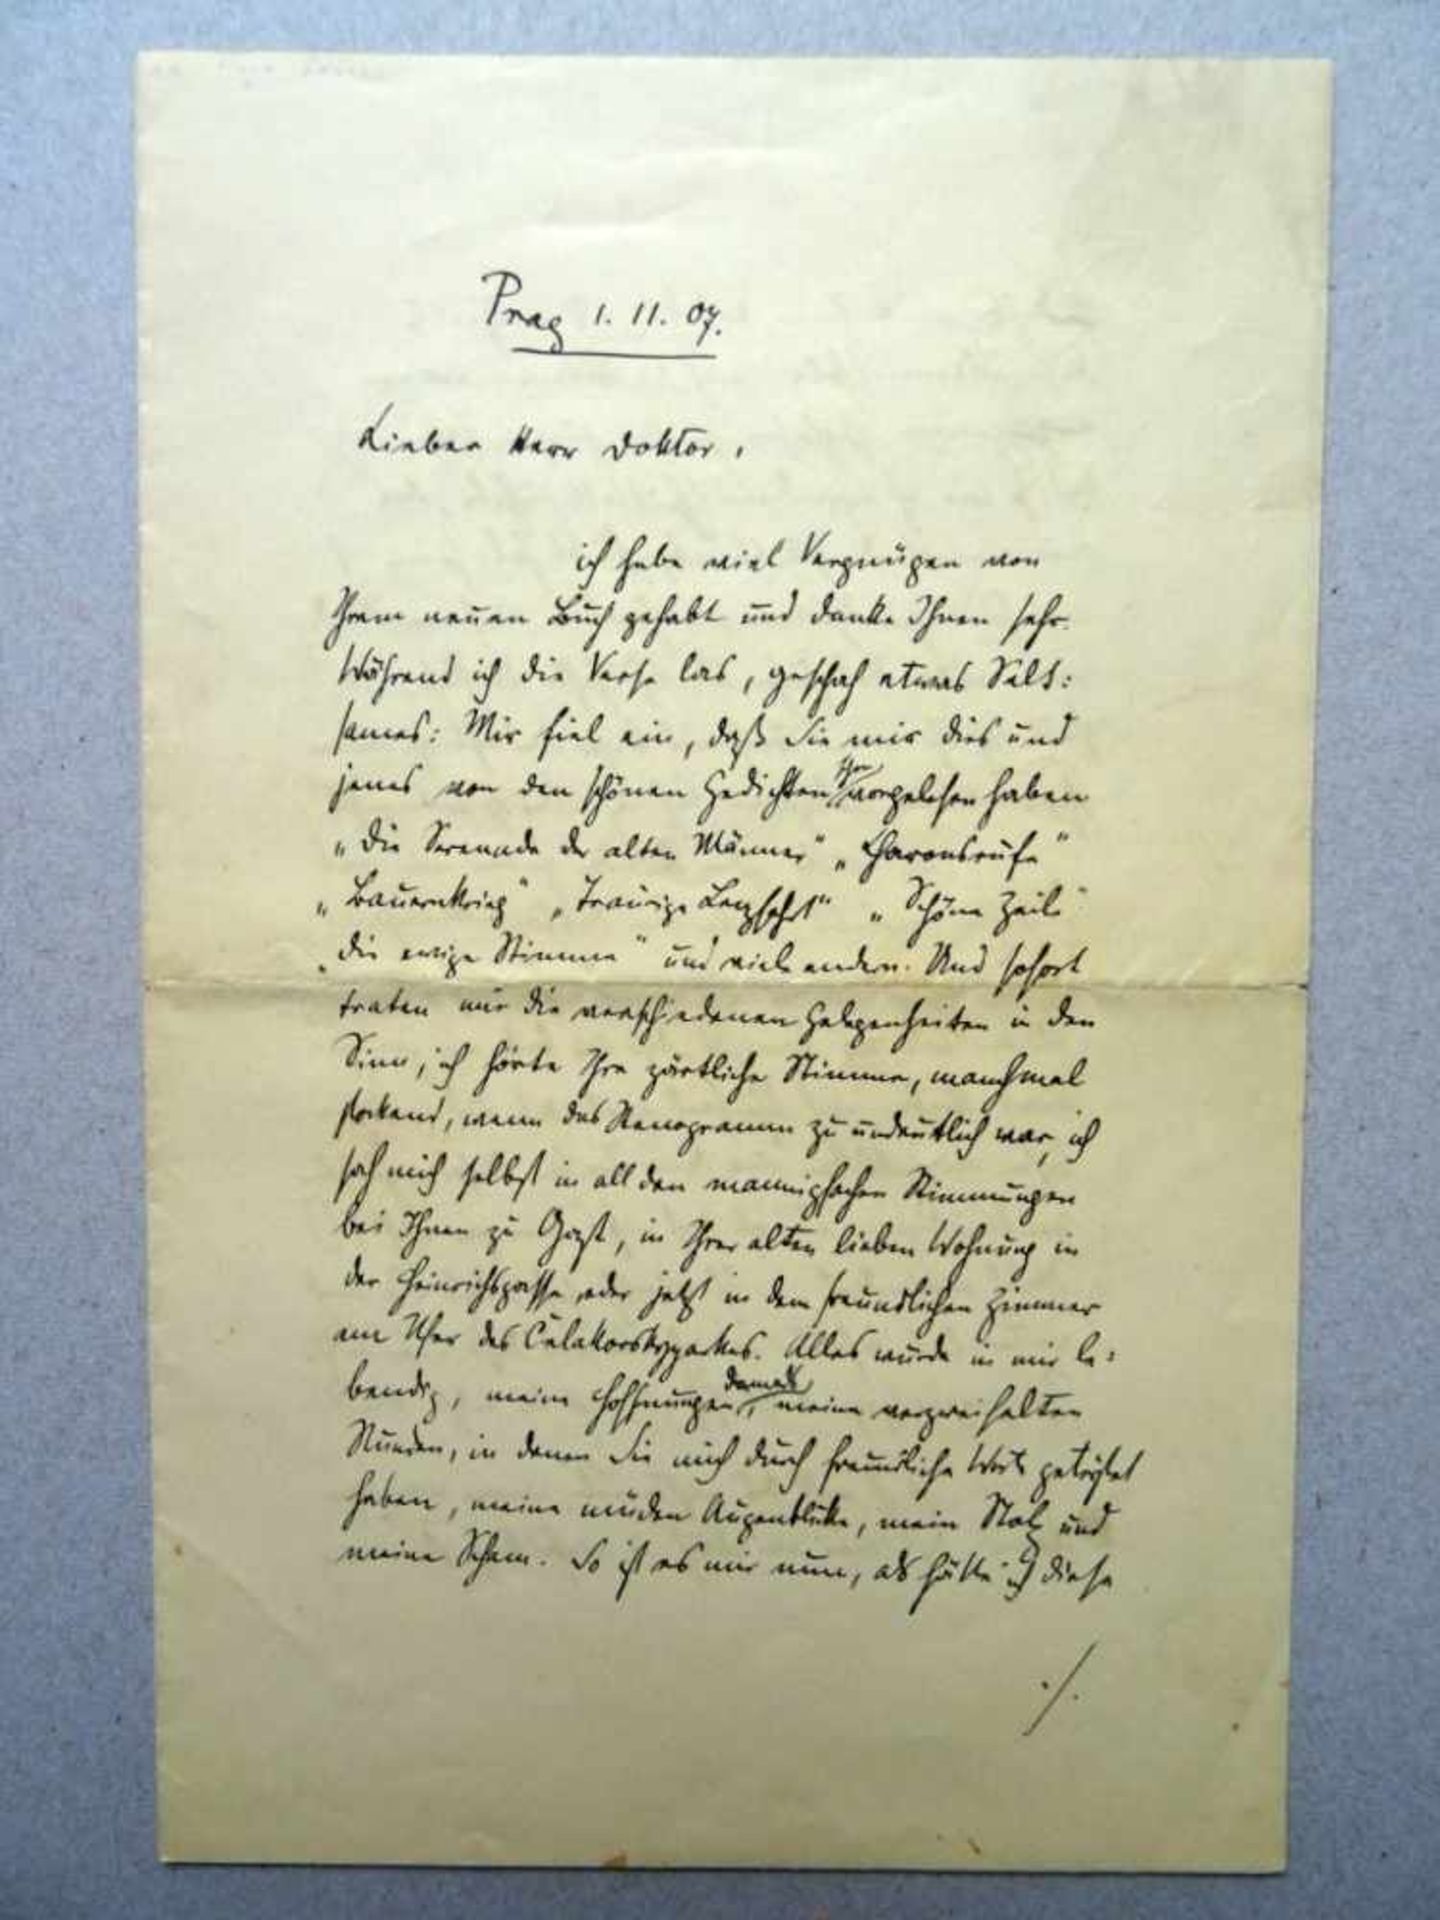 Prag 1. 11. 07.
Lieber Herr Doktor,
ich habe viel Vergnügen von
Ihrem neuen Buch gehabt und danke Ihnen sehr.
Während ich die Verse las, geschah etwas Selt:
sames: Mir fiel ein, daß Sie mir dies und
jenes von den schönen Gedichten schon vorgelesen haben
„Die Serenade der alten Männer“ „Charonsrufe“
„Bauernkrieg“ „Traurige Lenzfahrt“ „Schöne Zeile“
„Die ewige Stimme“ und viele andern. Und sofort
traten mir die verschiedenen Gelegenheiten in den
Sinn, ich hörte Ihre zärtliche Stimme, manchmal
stockend, wenn das Stenogramm zu undeutlich war, ich
sah mich selbst in all den mannigfachen Stimmungen
bei Ihnen zu Gast, in Ihrer alten lieben Wohnung in
der Heinrichsgasse, oder jetzt in dem freundlichen Zimmer
am Ufer des Čelakovskyparkes. Alles wurde in mir le:
bendig, meine Hoffnungen damals, meine verzweifelten
Stunden, in denen Sie mich durch freundliche Worte getröstet
haben, meine müden Augenblicke, mein Stolz und
meine Scham. So ist es mir nun, als hätte ich diese
./.